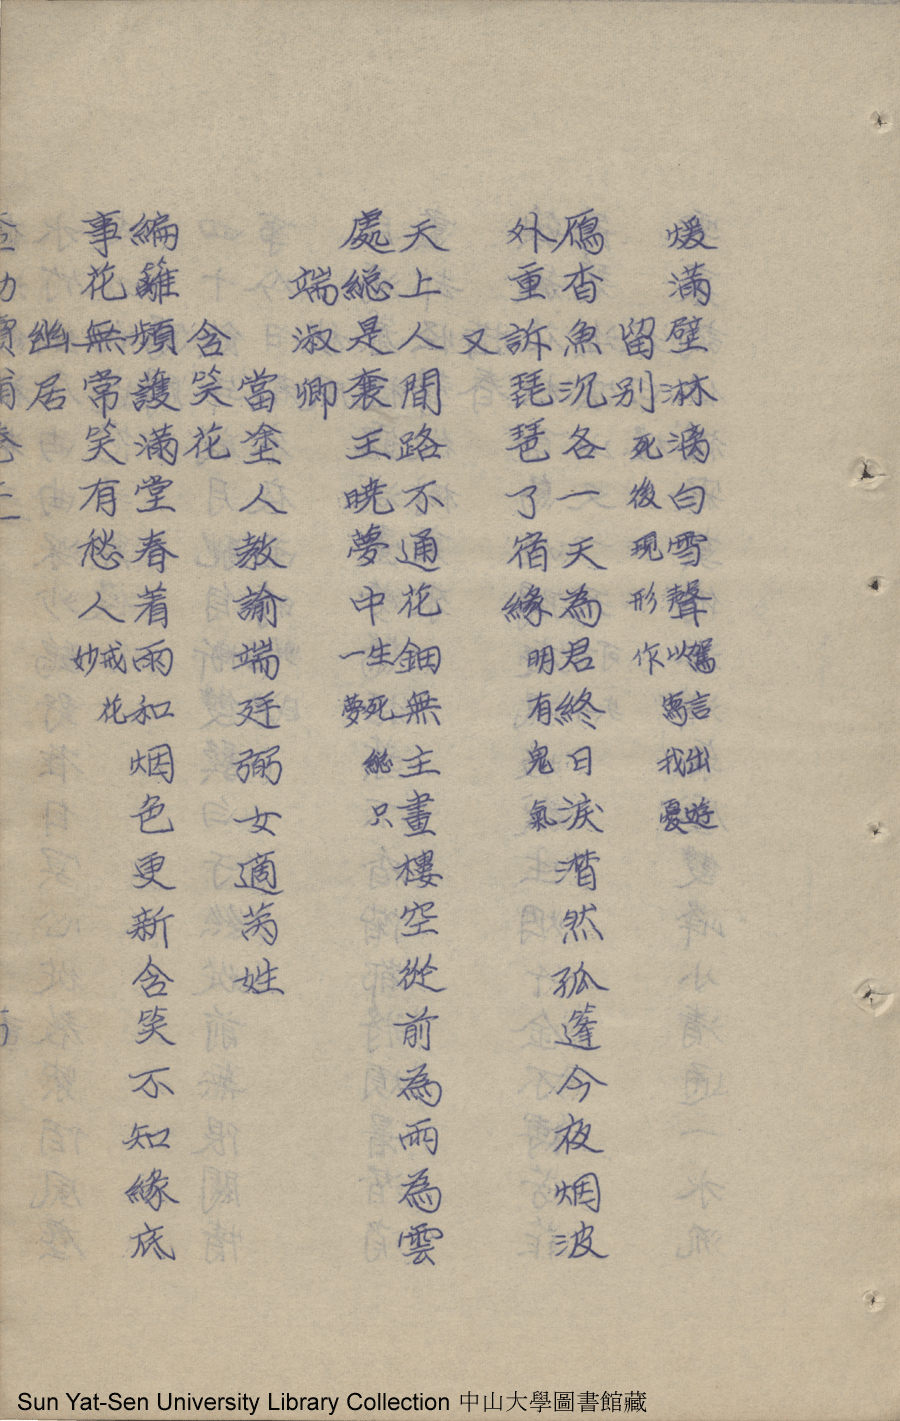 煖滿壁淋漓白雪聲 駕言出遊以寫我憂
留別 死後現形作
鴈杳魚沉各一天為君終日淚潸然孤蓬今夜烟波
外重訴琵琶了宿緣 明有鬼氣
又
天上人間路不通花鈿無主畫樓空從前為雨為雲
處総是襄王曉夢中 生死総只一夢
端淑卿
當塗人教諭端廷弼女適芮姓
含笑花
編籬頻護滿堂春着雨和烟色更新含笑不知緣底
事花無常笑有愁人 戒花妙
幽居
Sun Yat-Sen University Library Collection 中山大學圖書館藏